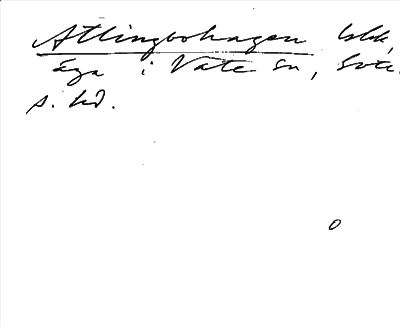 Atlingbohagen bbk,
äga i Väte sn, Gotl.
s. hd.